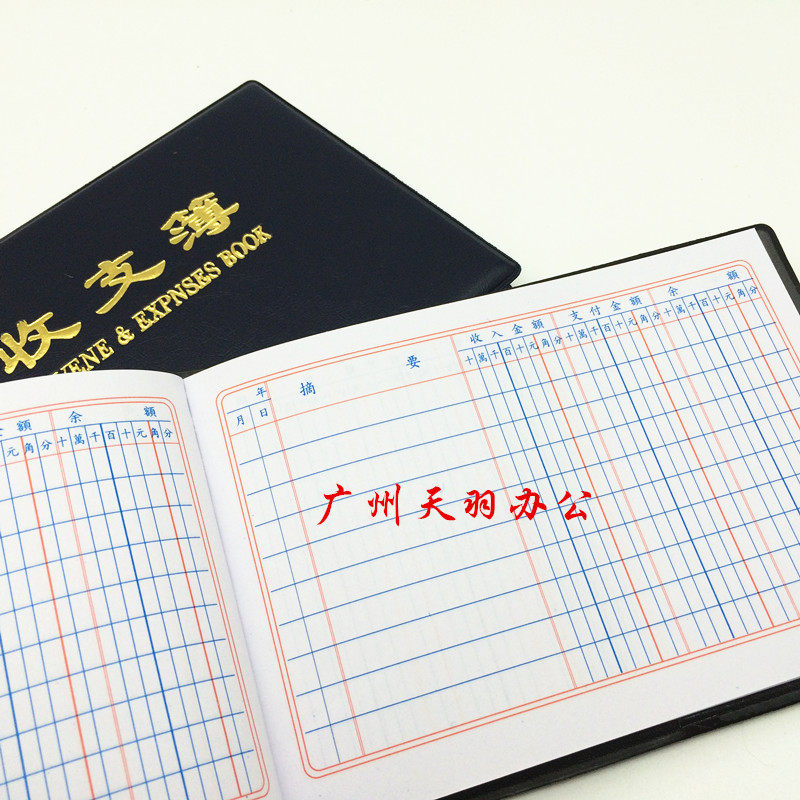 收支簿
VENE & EXPNSES BOOK
年
月 日
摘 要
收入金額
支付金額
余 額
十萬千百十元角分
十萬千百十元角分
十萬千百十元角分
金額
余 額
元角分
十萬千百十元角分
广州天羽办公